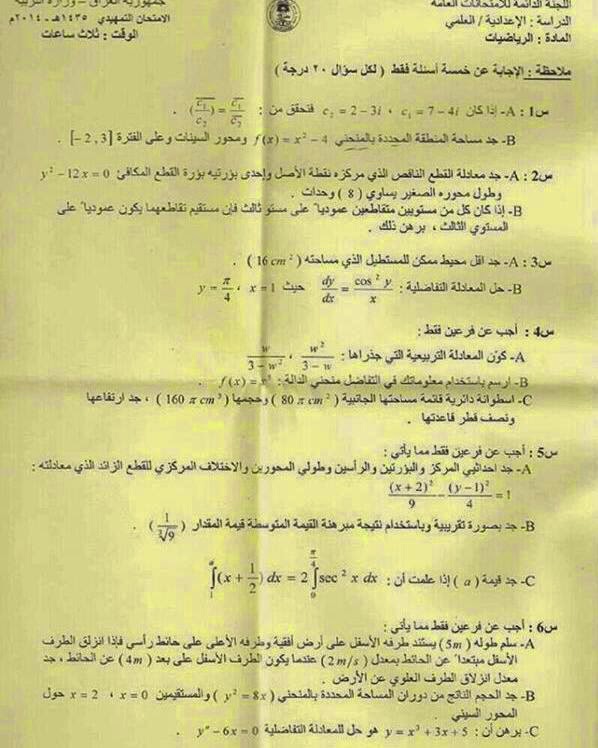 جمهورية العراق – وزارة التربية
اللجنة الدائمة للامتحانات العامة
الامتحان التمهيدي ١٤٣٥هـ - ٢٠١٤م
الدراسة : الإعدادية / العلمي
الوقت : ثلاث ساعات
المادة : الرياضيات
ملاحظة : الإجابة عن خمسة أسئلة فقط ( لكل سؤال ٢٠ درجة )
س1 : A- إذا كان c₁ = 7 – 4i ، c₂ = 2 – 3i فتحقق من : \overline{(c₁/c₂)} = \overline{c₁}/\overline{c₂} .
B- جد مساحة المنطقة المحددة بالمنحني f(x) = x² – 4 ومحور السينات وعلى الفترة [-2 , 3] .
س2 : A- جد معادلة القطع الناقص الذي مركزه نقطة الأصل وإحدى بؤرتيه بؤرة القطع المكافئ y² – 12x = 0
وطول محوره الصغير يساوي ( 8 ) وحدات .
B- إذا كان كل من مستويين متقاطعين عمودياً على مستو ثالث فإن مستقيم تقاطعهما يكون عمودياً على
المستوي الثالث ، برهن ذلك .
س3 : A- جد اقل محيط ممكن للمستطيل الذي مساحته ( 16 cm² ) .
B- حل المعادلة التفاضلية : dy/dx = cos² y / x حيث x = 1 ، y = π/4
س4 : أجب عن فرعين فقط :
A- كوّن المعادلة التربيعية التي جذراها : w²/(3 – w) ، w/(3 – w²)
B- ارسم باستخدام معلوماتك في التفاضل منحني الدالة : f(x) = x³ .
C- اسطوانة دائرية قائمة مساحتها الجانبية ( 80 π cm² ) وحجمها ( 160 π cm³ ) ، جد ارتفاعها
ونصف قطر قاعدتها .
س5 : أجب عن فرعين فقط مما يأتي :
A- جد احداثيي المركز والبؤرتين والرأسين وطولي المحورين والاختلاف المركزي للقطع الزائد الذي معادلته :
(x + 2)²/9 – (y – 1)²/4 = 1
B- جد بصورة تقريبية وباستخدام نتيجة مبرهنة القيمة المتوسطة قيمة المقدار ( 1/∛9 ) .
C- جد قيمة ( a ) إذا علمت أن : ∫₁ᵃ (x + 1/2) dx = 2 ∫₀^{π/4} sec² x dx
س6 : أجب عن فرعين فقط مما يأتي :
A- سلم طوله (5m) يستند طرفه الأسفل على أرض أفقية وطرفه الأعلى على حائط رأسي فإذا انزلق الطرف
الأسفل مبتعداً عن الحائط بمعدل ( 2 m/s ) عندما يكون الطرف الأسفل على بعد ( 4m ) عن الحائط ، جد
معدل انزلاق الطرف العلوي عن الأرض .
B- جد الحجم الناتج من دوران المساحة المحددة بالمنحني ( y² = 8x ) والمستقيمين x = 0 ، x = 2 حول
المحور السيني .
C- برهن أن : y = x³ + 3x + 5 هو حل للمعادلة التفاضلية y″ – 6x = 0 .